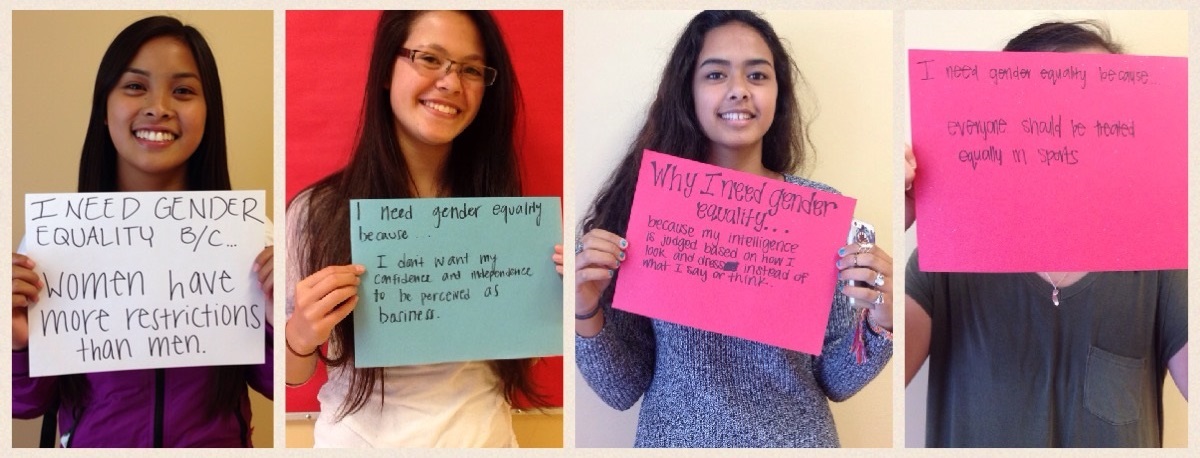 I NEED GENDER
EQUALITY B/C...
WOMEN have
more restrictions
than men.
I need gender equality
because...
I don't want my
confidence and independence
to be perceived as
bossiness.
Why I need gender
equality...
because my intelligence
is judged based on how I
look and dress instead of
what I say or think..
I need gender equality because...
everyone should be treated
equally in sports